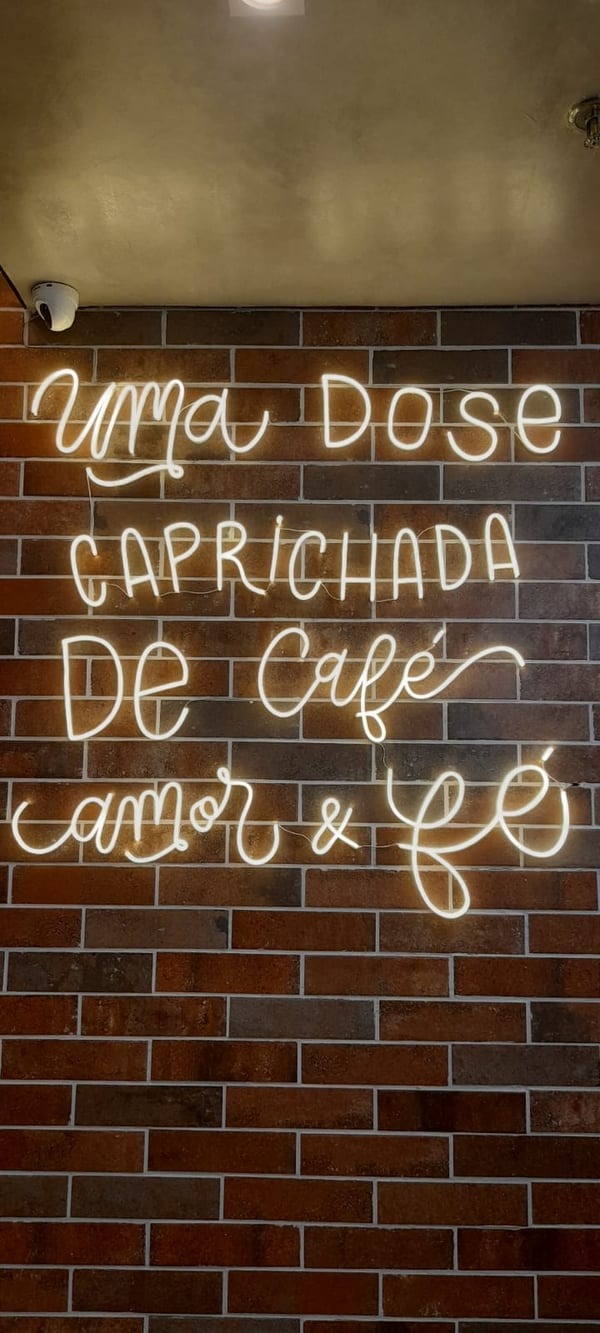 uma Dose
CAPRiCHADA
De Café
amor & fé